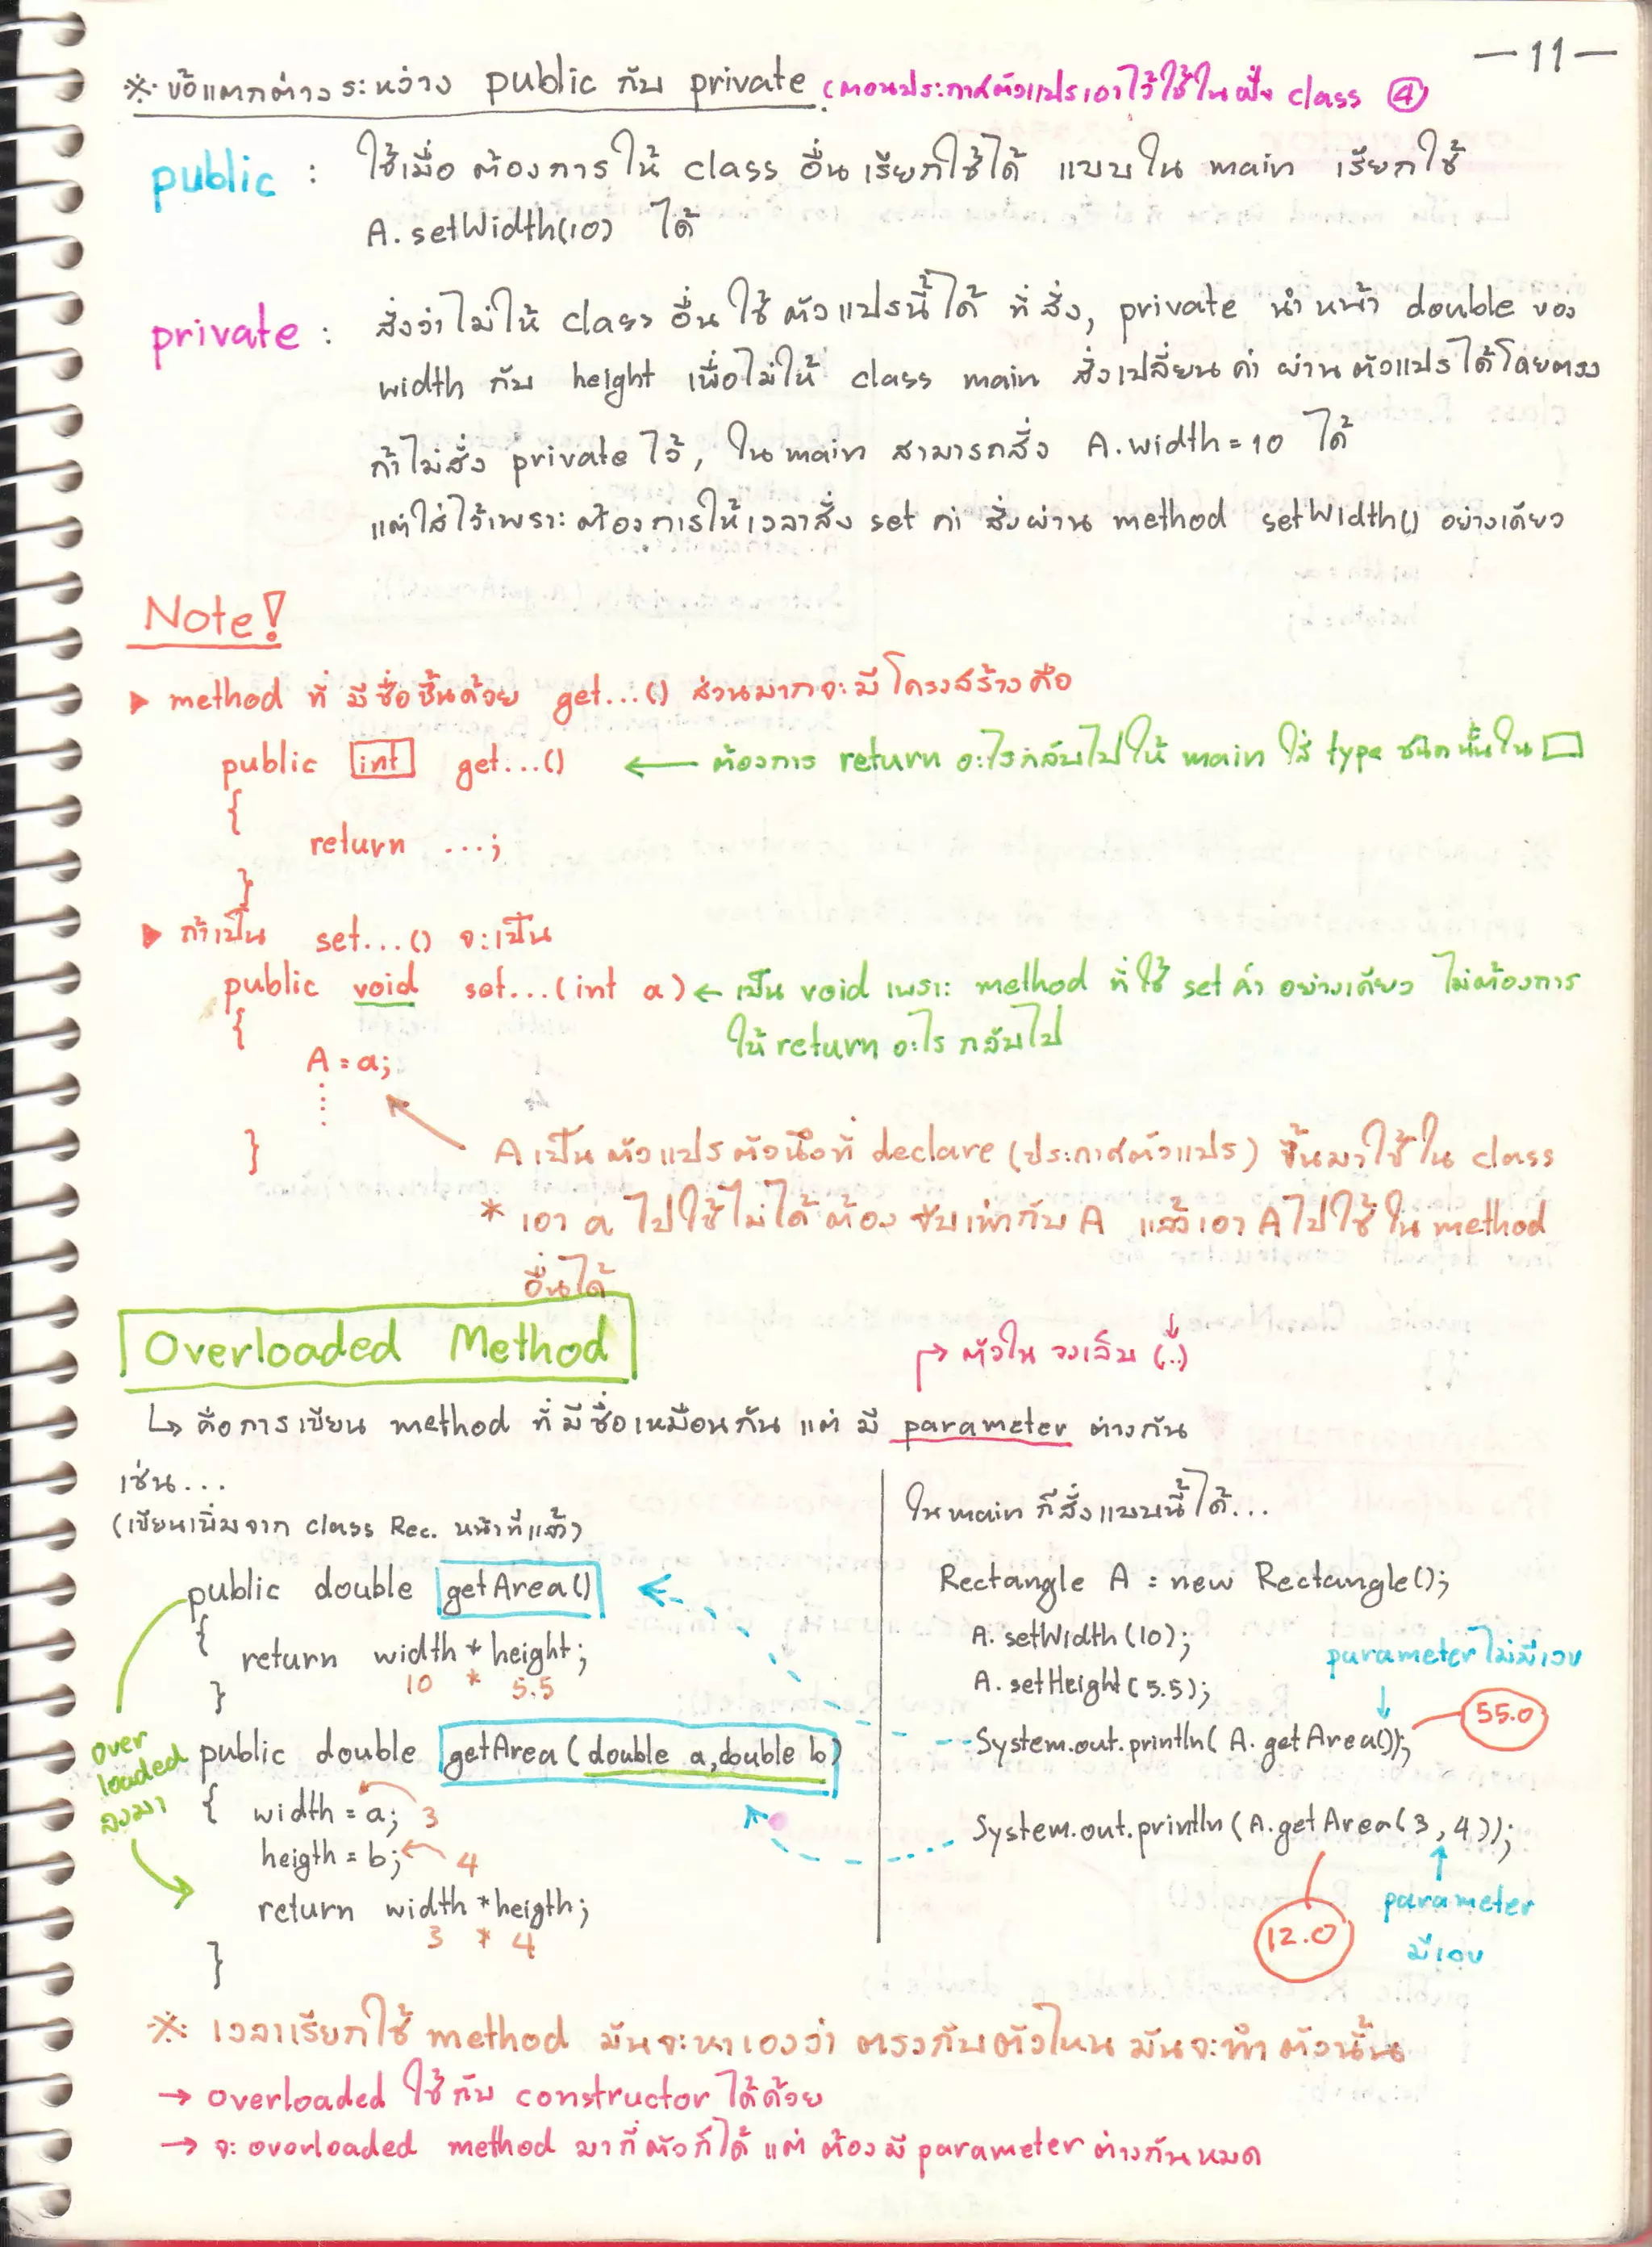 — 11 —
※ ข้อแตกต่างระหว่าง public กับ private (ตอนประกาศตัวแปรเอาไว้ใช้ในฝั่ง class ④)
public : ใช้เมื่อ ต้องการให้ class อื่นเรียกใช้ได้ แบบใน main เรียกใช้
A.setWidth(10) ได้
private : สั่งว่าไม่ให้ class อื่นใช้ตัวแปรนี้ได้ ที่สั่ง, private นำหน้า double ของ
width กับ height เพื่อไม่ให้ class main สั่งเปลี่ยนค่า ผ่านตัวแปรได้โดยตรง
ถ้าไม่สั่ง private ไว้, ในmain สามารถสั่ง A.width=10 ได้
แต่ใส่ไว้เพราะ ต้องการให้เวลาสั่ง set ค่า สั่งผ่าน method setWidth() อย่างเดียว
Note!
▶ method ที่มีชื่อขึ้นด้วย get...() ส่วนมากจะมีโครงสร้างคือ
public int get...() ← ต้องการ return อะไรกลับไปให้ main ใส่ type ชนิดนั้นใน □
{
return ...;
}
▶ ถ้าเป็น set...() จะเป็น
public void set...(int a) ← เป็น void เพราะ method ที่ใช้ set ค่า อย่างเดียว ไม่ต้องการ
{ ให้ return อะไร กลับไป
A = a;
⋮
} A เป็นตัวแปรตัวนึงที่ declare (ประกาศตัวแปร) ขึ้นมาใช้ใน class
* เอา a ไปใช้ไม่ได้ ต้อง จับเท่ากับ A แล้วเอา A ไปใช้ใน method
อื่นได้
Overloaded Method
↱ ตัวใน วงเล็บ (..)
↳ คือการเขียน method ที่มีชื่อเหมือนกัน แต่ มี parameter ต่างกัน
เช่น...
(เขียนเพิ่มจาก class Rec. หน้าที่แล้ว)
public double getArea()
{
return width * height;
10 * 5.5
}
over
loaded
ลงมา
public double getArea(double a, double b)
{ width = a; 3
heigth = b; 4
return width * heigth;
3 * 4
}
ในmain ก็สั่งแบบนี้ได้...
Rectangle A = new Rectangle();
A. setWidth(10);
A. setHeight(5.5);
parameter ไม่มีเลข
System.out.println( A. getArea()); 55.0
System.out.println(A.getArea(3, 4));
12.0
parameter
มีเลข
※ เวลาเรียกใช้ method มันจะหาเองว่า ตรงกับตัวไหน มันจะทำ ตัวนั้น
→ overloaded ใช้กับ constructor ได้ด้วย
→ จะ overloaded method มากี่ตัวก็ได้ แต่ ต้องมี parameter ต่างกันหมด